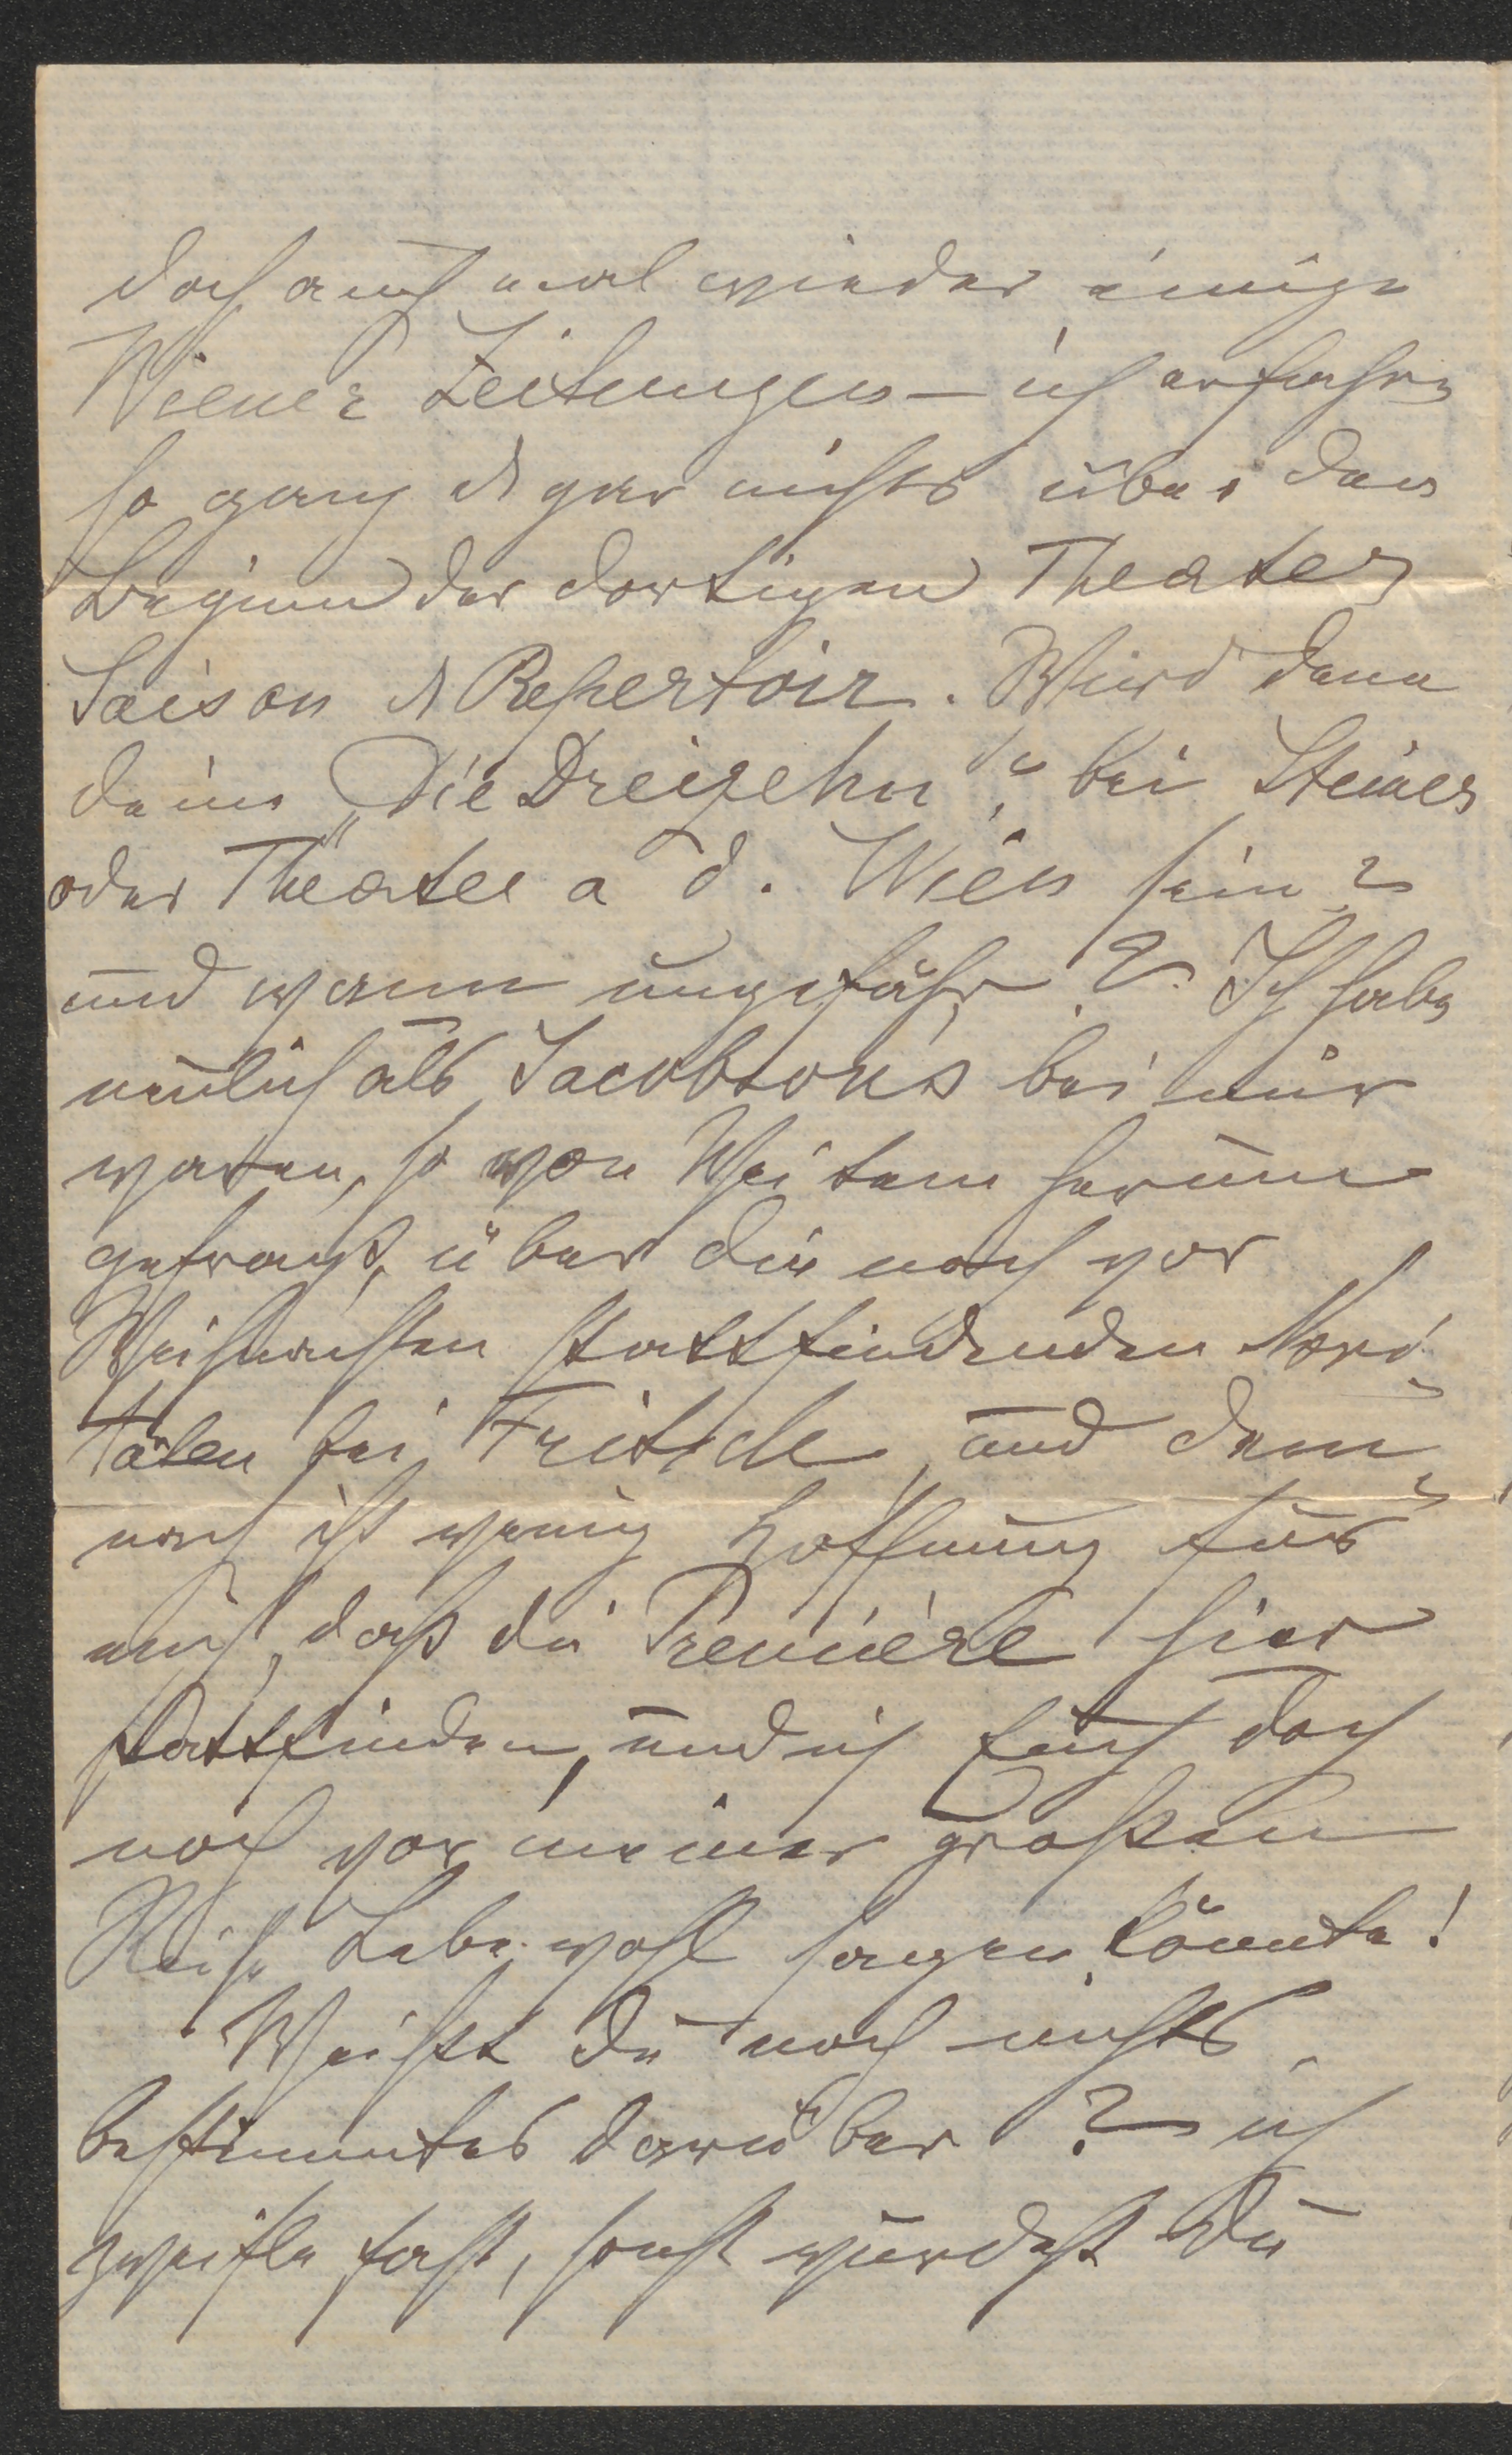 doch auch mal wieder einige
Wiener Zeitungen – ich erfahre
so ganz & gar nichts über den
Beginn der dortigen Theater
Saison & Repertoir. Wird denn
deine „Die Dreizehn“, bei Steiner
oder Theater a d. Wien sein?
und wann ungefähr? Ich habe
neulich als Jacobsons bei mir
waren, so von Weitem herum
gefragt, über die noch vor
Weihnachten stattfindenden Novi
täten bei Fritsche, und dem
nach ist wenig Hoffnung für
mich, daß die Première hier
stattfinden, und ich Euch doch
noch vor meiner großen
Reise Lebewohl sagen könnte!
Weißt Du noch nichts
bestimmtes darüber? ich
zweifle fast, sonst würdest Du